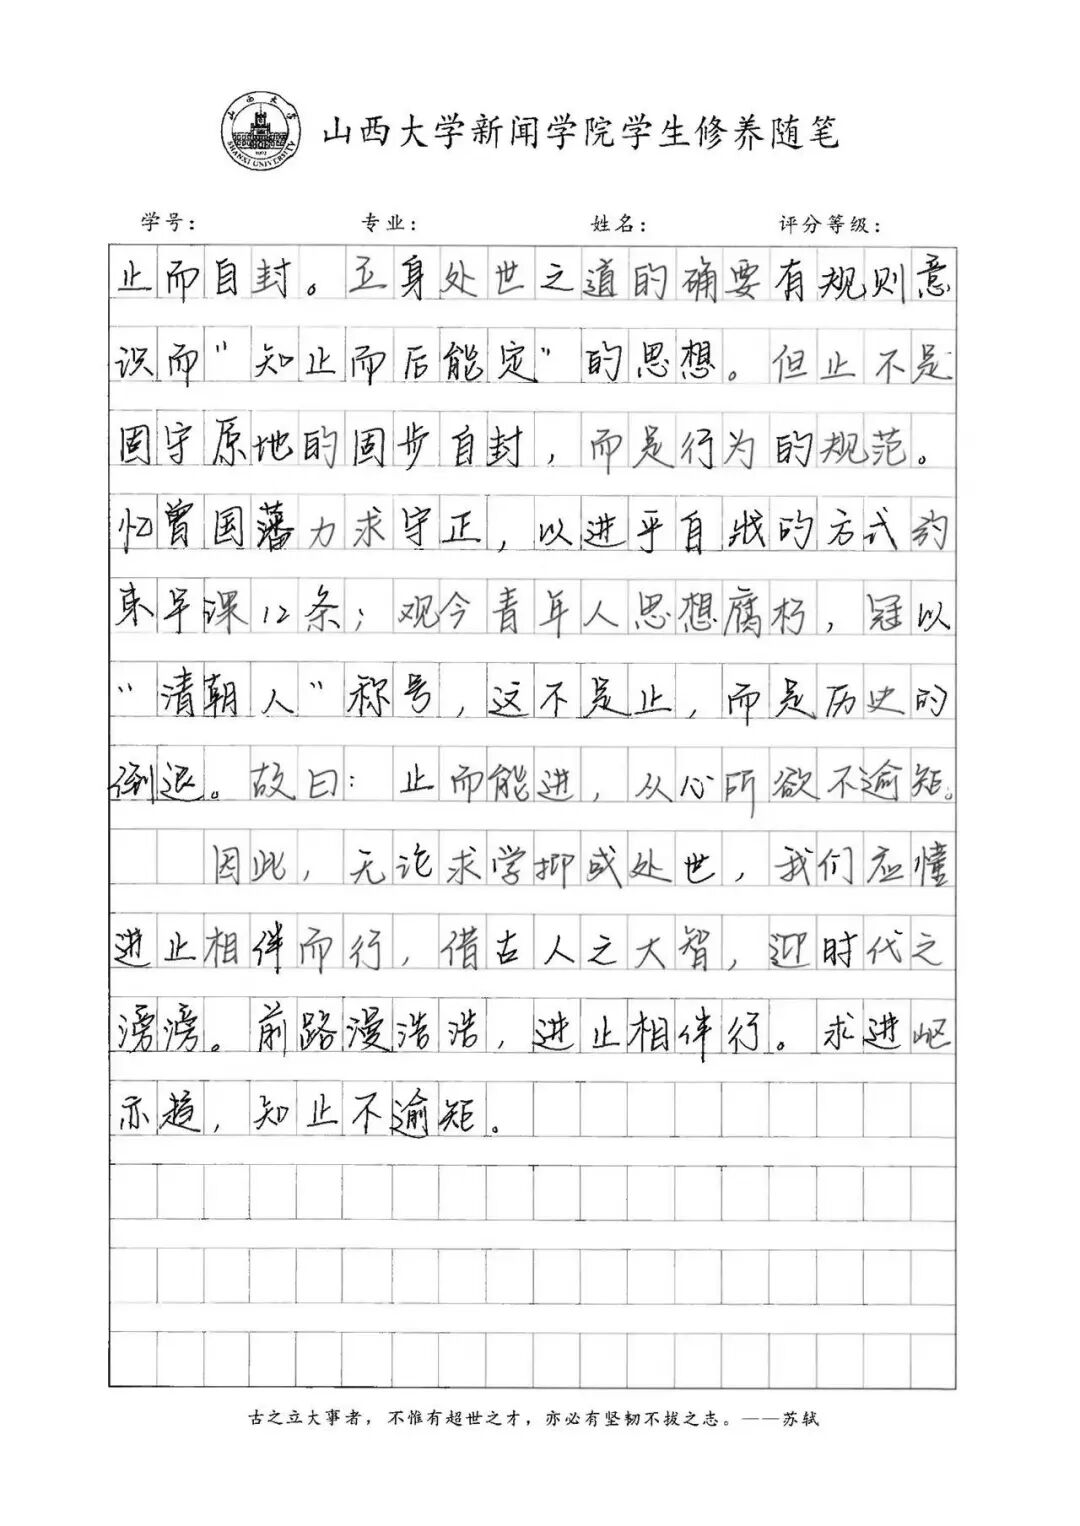 山西大学
SHANXI UNIVERSITY
1902
山西大学新闻学院学生修养随笔
学号： 专业： 姓名： 评分等级：
止而自封。立身处世之道的确要有规则意
识而“知止而后能定”的思想。但止不是
固守原地的固步自封，而是行为的规范。
忆曾国藩力求守正，以进乎自戕的方式约
束早课12条；观今青年人思想腐朽，冠以
“清朝人”称号，这不是止，而是历史的
倒退。故曰：止而能进，从心所欲不逾矩。
因此，无论求学抑或处世，我们应懂
进止相伴而行，借古人之大智，迎时代之
滂滂。前路漫浩浩，进止相伴行。求进岖
亦趋，知止不逾矩。
古之立大事者，不惟有超世之才，亦必有坚韧不拔之志。——苏轼